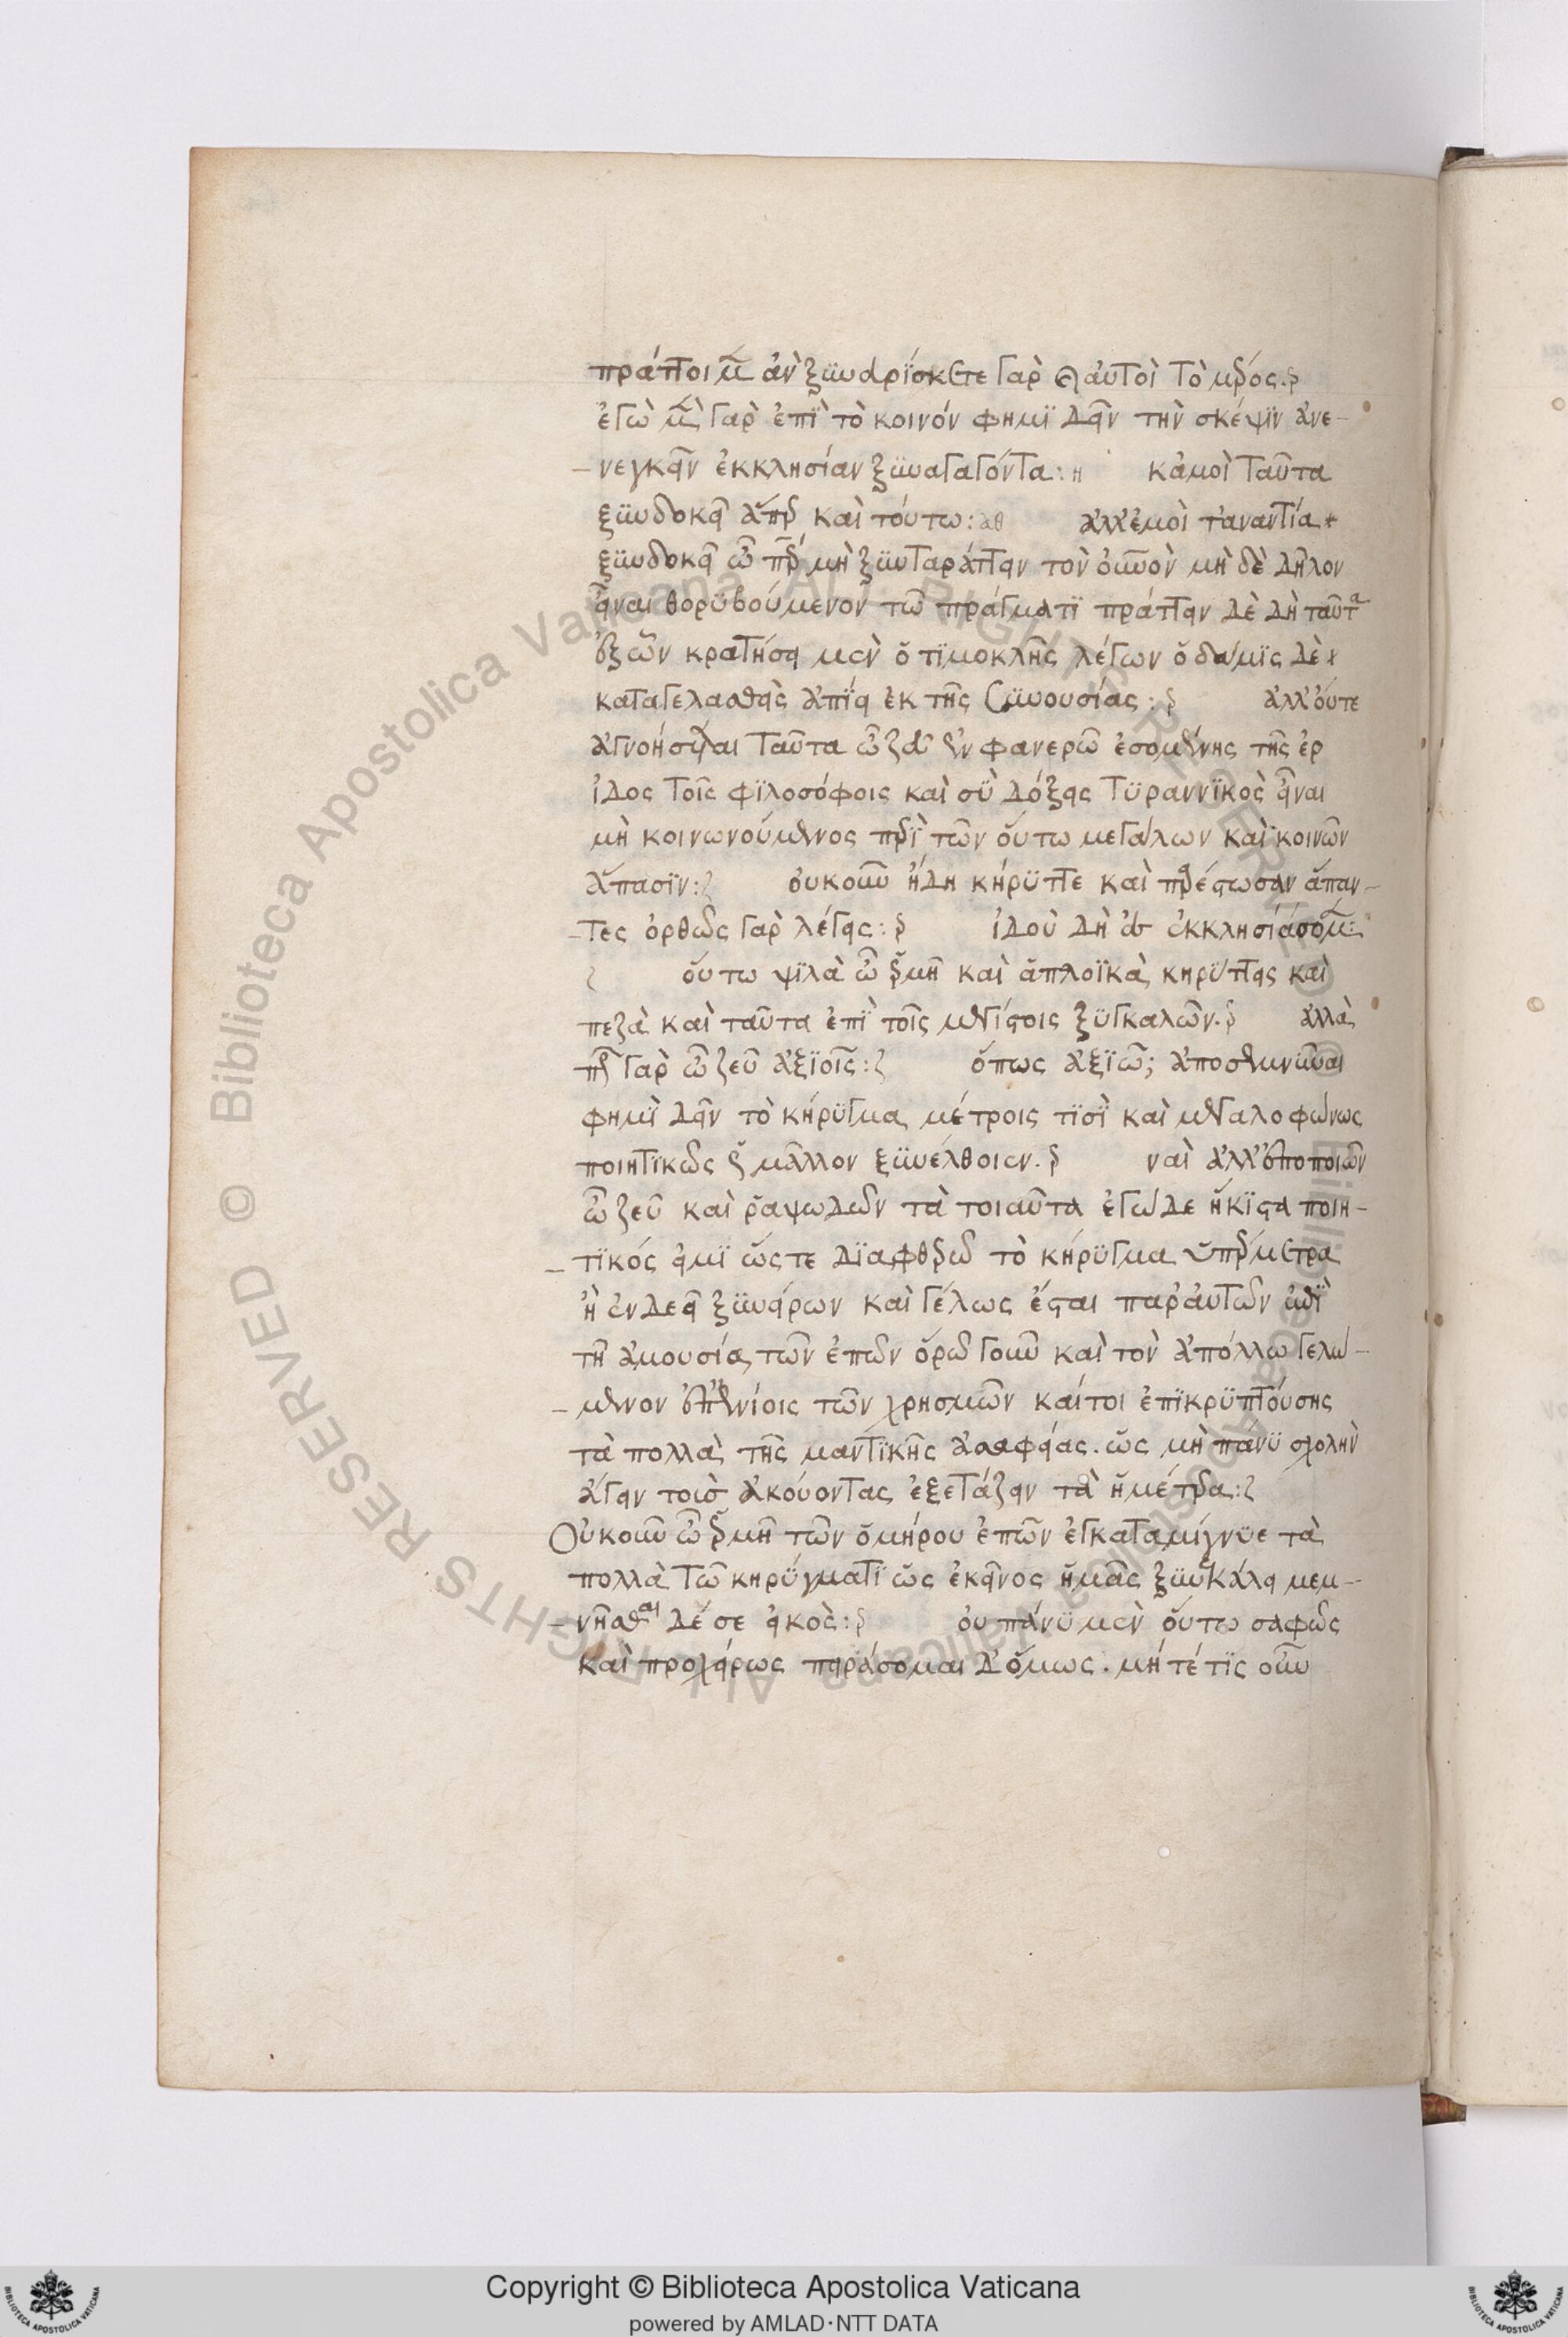 πράττοιμεν ἂν ξυνευρίσκετε γὰρ καὶ αὐτοὶ τὸ μέρος.
ἐγὼ μὲν γὰρ ἐπὶ τὸ κοινόν φημὶ δεῖν τὴν σκέψιν ἀνε-
-νεγκεῖν ἐκκλησίαν ξυναγαγόντα: η κἀμοὶ ταῦτα
ξυνδοκεῖ ἅπερ καὶ τούτω: αθ ἀλλ' ἐμοὶ τἀναντία
ξυνδοκεῖ ὦ πάτερ μὴ ξυνταράττειν τὸν οὐρανὸν μὴ δὲ δῆλον
εἶναι θορυβούμενον τῶ πράγματι πράττειν δὲ δὴ ταῦτα
ἐξ ὧν κρατήσει μὲν ὁ τιμοκλῆς λέγων ὁ δάμις δὲ
καταγελασθεὶς ἀπίει ἐκ τῆς συνουσίας: ἀλλ' οὔτε
ἀγνοήσεται ταῦτα ὦ ζεῦ ἐν φανερῶ ἐσομένης τῆς ἔρ
ιδος τοῖς φιλοσόφοις καὶ σὺ δόξεις τυραννικὸς εἶναι
μὴ κοινωνούμενος περὶ τῶν οὕτω μεγάλων καὶ κοινῶν
ἅπασιν: οὐκοῦν ἤδη κήρυττε καὶ παρέστωσαν ἅπαν-
-τες ὀρθῶς γὰρ λέγεις: ἰδοὺ δὴ εἰς ἐκκλησίαν
οὕτω ψιλὰ ὦ ἑρμῆ καὶ ἁπλοϊκὰ κηρύττεις καὶ
πεζὰ καὶ ταῦτα ἐπὶ τοῖς μεγίστοις ξυγκαλῶν. ἀλλὰ
πῶς γὰρ ὦ ζεῦ ἀξιοῖς: ὅπως ἀξιῶ; ἀποσεμνῦναι
φημὶ δεῖν τὸ κήρυγμα μέτροις τισὶ καὶ μεγαλοφώνως
ποιητικῶς ὡς μᾶλλον ξυνέλθοιεν. ναὶ ἀλλ' ἐποποιῶν
ὦ ζεῦ καὶ ῥαψωδῶν τὰ τοιαῦτα ἐγὼ δὲ ἥκιστα ποιη-
-τικός εἰμι ὥστε διαφθερῶ τὸ κήρυγμα ὑπέρμετρα
ἢ ἐνδεῆ ξυνείρων καὶ γέλως ἔσται παρ' αὐτῶν ἐπὶ
τῆ ἀμουσία τῶν ἐπῶν ὁρῶ γοῦν καὶ τὸν ἀπόλλω γελώ-
-μενον ἐπ' ἐνίοις τῶν χρησμῶν καίτοι ἐπικρυπτούσης
τὰ πολλὰ τῆς μαντικῆς ἀσαφείας. ὡς μὴ πάνυ σχολὴν
ἄγειν τοὺς ἀκούοντας ἐξετάζειν τὰ ἡμέτερα:
Οὐκοῦν ὦ ἑρμῆ τῶν ὁμήρου ἐπῶν ἐγκαταμίγνυε τὰ
πολλὰ τῶ κηρύγματι ὡς ἐκεῖνος ἡμᾶς ξυνεκάλει μεμ-
-νῆσθαι δέ σε εἰκός: οὐ πάνυ μὲν οὕτω σαφῶς
καὶ προχείρως πειράσομαι δ' ὅμως. μήτέ τις οὖν
Copyright © Biblioteca Apostolica Vaticana
powered by AMLAD·NTT DATA